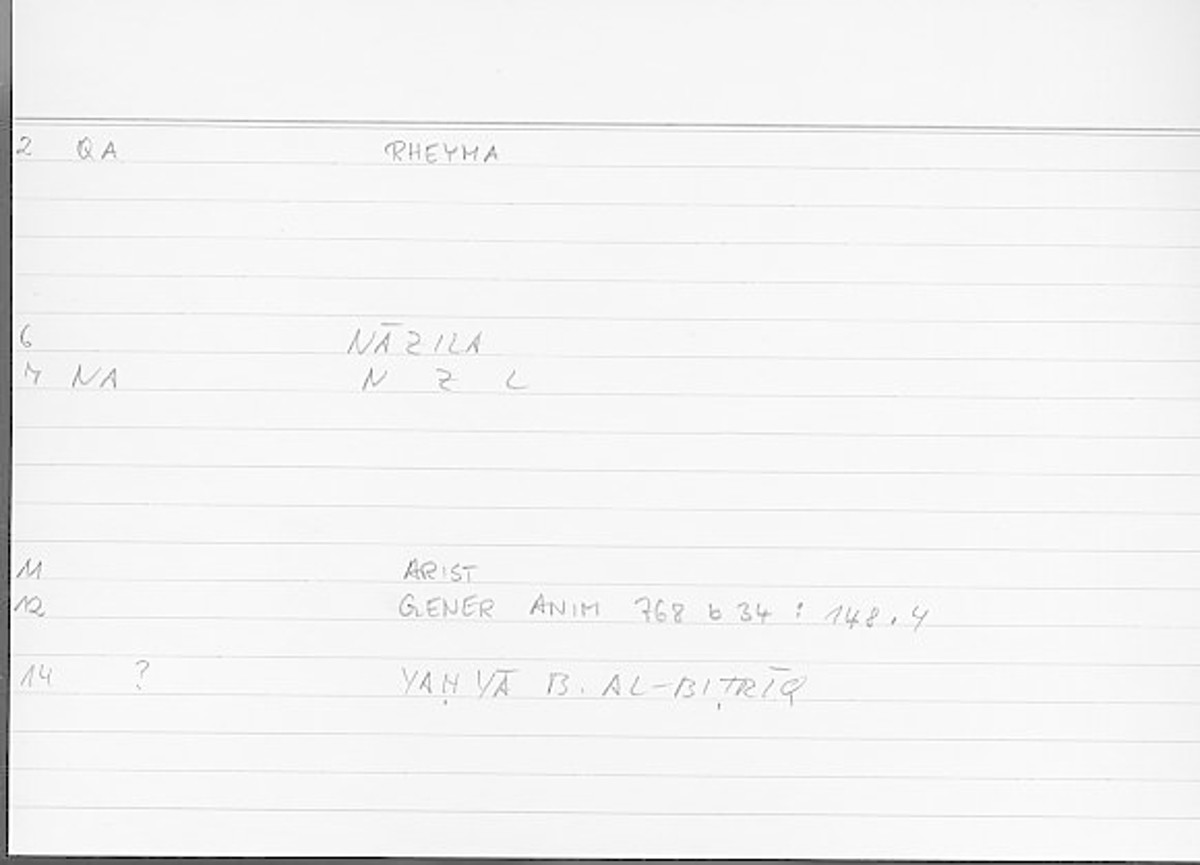 2 QA RHEYMA
6 NĀZILA
7 NA N Z L
11 ARIST
12 GENER ANIM 768 b 34 : 148.4
14 ? YAḤYĀ B. AL-BIṬRĪQ